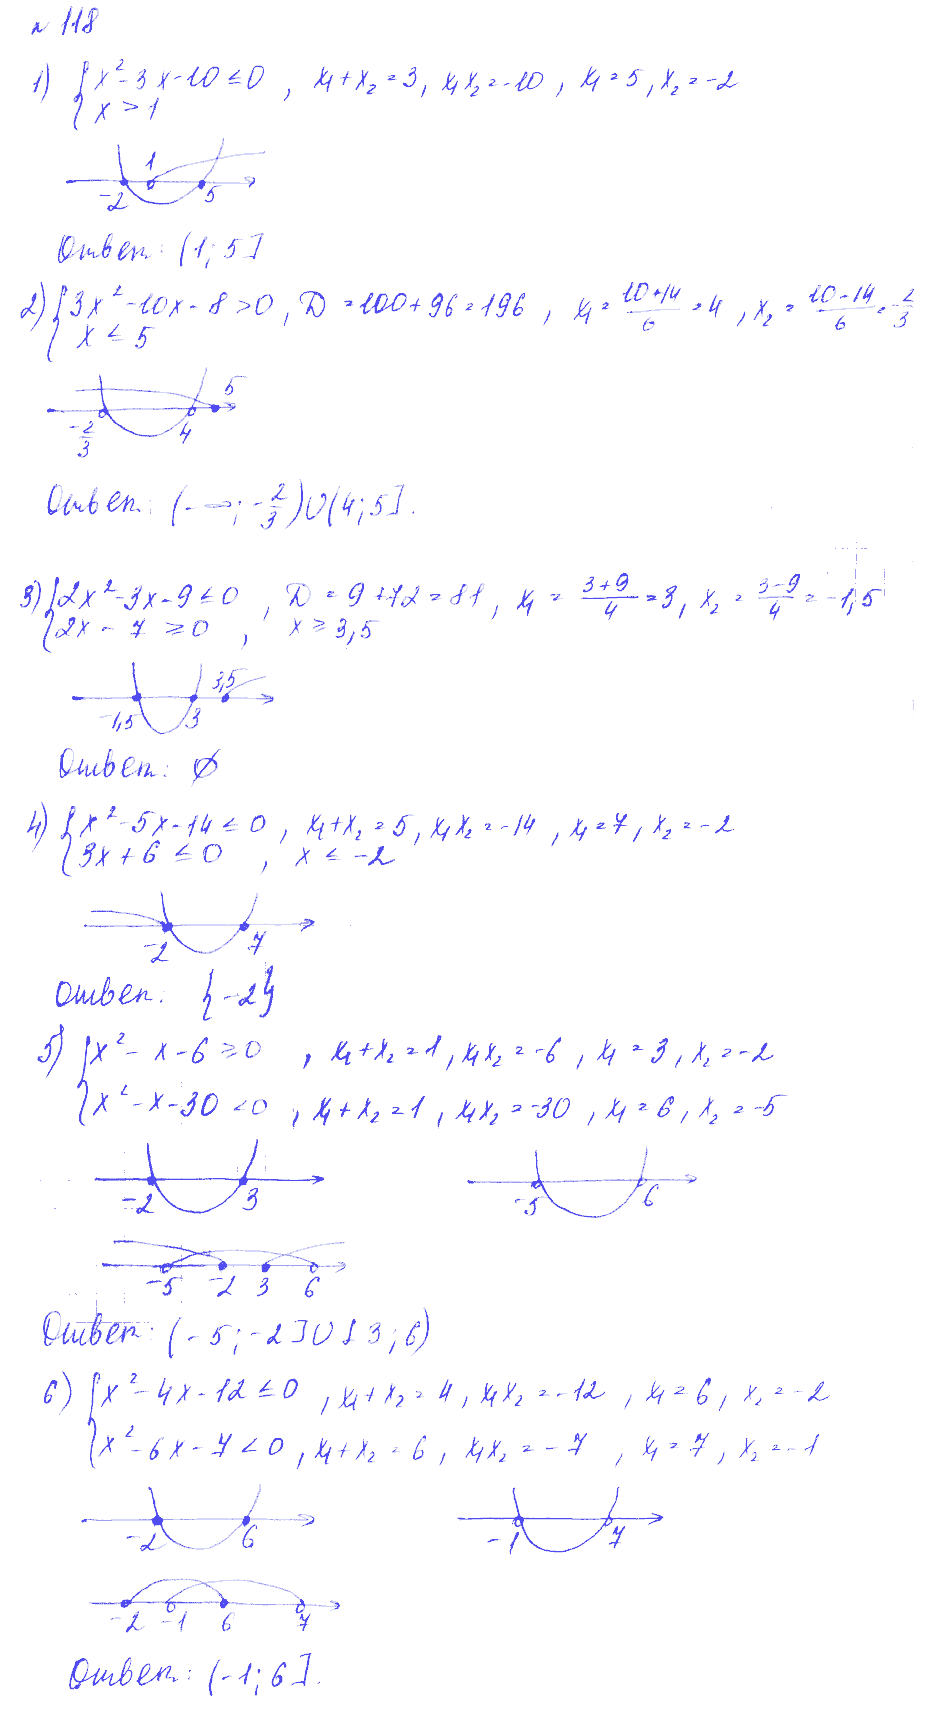 № 118
1) { x² - 3x - 10 ≤ 0 , x₁ + x₂ = 3, x₁x₂ = -10 , x₁ = 5 , x₂ = -2
x > 1
1
-2 5
Ответ: (1; 5]
2) { 3x² - 10x - 8 > 0 , D = 100 + 96 = 196 , x₁ = (10+14)/6 = 4 , x₂ = (10-14)/6 = -2/3
x ≤ 5
5
-2/3 4
Ответ: (-∞; -2/3) ∪ (4; 5].
3) { 2x² - 3x - 9 ≤ 0 , D = 9 + 72 = 81 , x₁ = (3+9)/4 = 3, x₂ = (3-9)/4 = -1,5
2x - 7 ≥ 0 , x ≥ 3,5
3,5
-1,5 3
Ответ: ∅
4) { x² - 5x - 14 ≤ 0 , x₁ + x₂ = 5, x₁x₂ = -14 , x₁ = 7, x₂ = -2
3x + 6 ≤ 0 , x ≤ -2
-2 7
Ответ: {-2}
5) { x² - x - 6 ≥ 0 , x₁ + x₂ = 1, x₁x₂ = -6 , x₁ = 3, x₂ = -2
x² - x - 30 < 0 , x₁ + x₂ = 1 , x₁x₂ = -30 , x₁ = 6, x₂ = -5
-2 3 -5 6
-5 -2 3 6
Ответ: (-5; -2] ∪ [3; 6)
6) { x² - 4x - 12 ≤ 0 , x₁ + x₂ = 4, x₁x₂ = -12 , x₁ = 6, x₂ = -2
x² - 6x - 7 < 0 , x₁ + x₂ = 6, x₁x₂ = -7 , x₁ = 7, x₂ = -1
-2 6 -1 7
-2 -1 6 7
Ответ: (-1; 6].